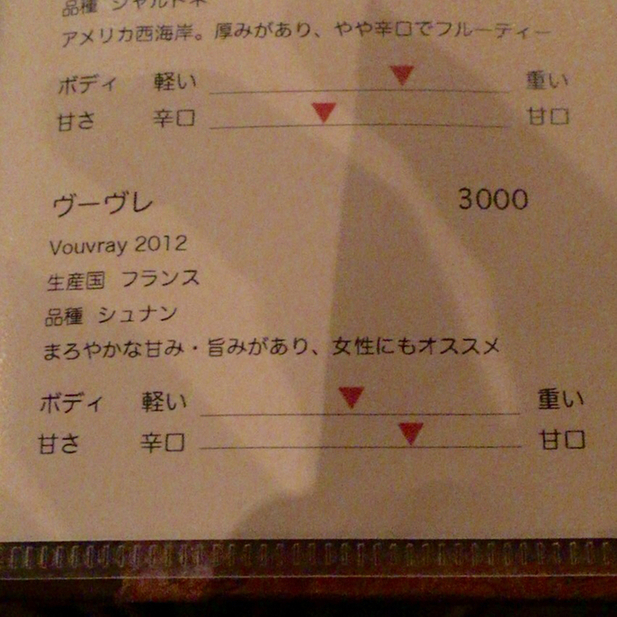 品種 シャルドネ
アメリカ西海岸。厚みがあり、やや辛口でフルーティー
ボディ 軽い 重い
甘さ 辛口 甘口
ヴーヴレ 3000
Vouvray 2012
生産国 フランス
品種 シュナン
まろやかな甘み・旨みがあり、女性にもオススメ
ボディ 軽い 重い
甘さ 辛口 甘口